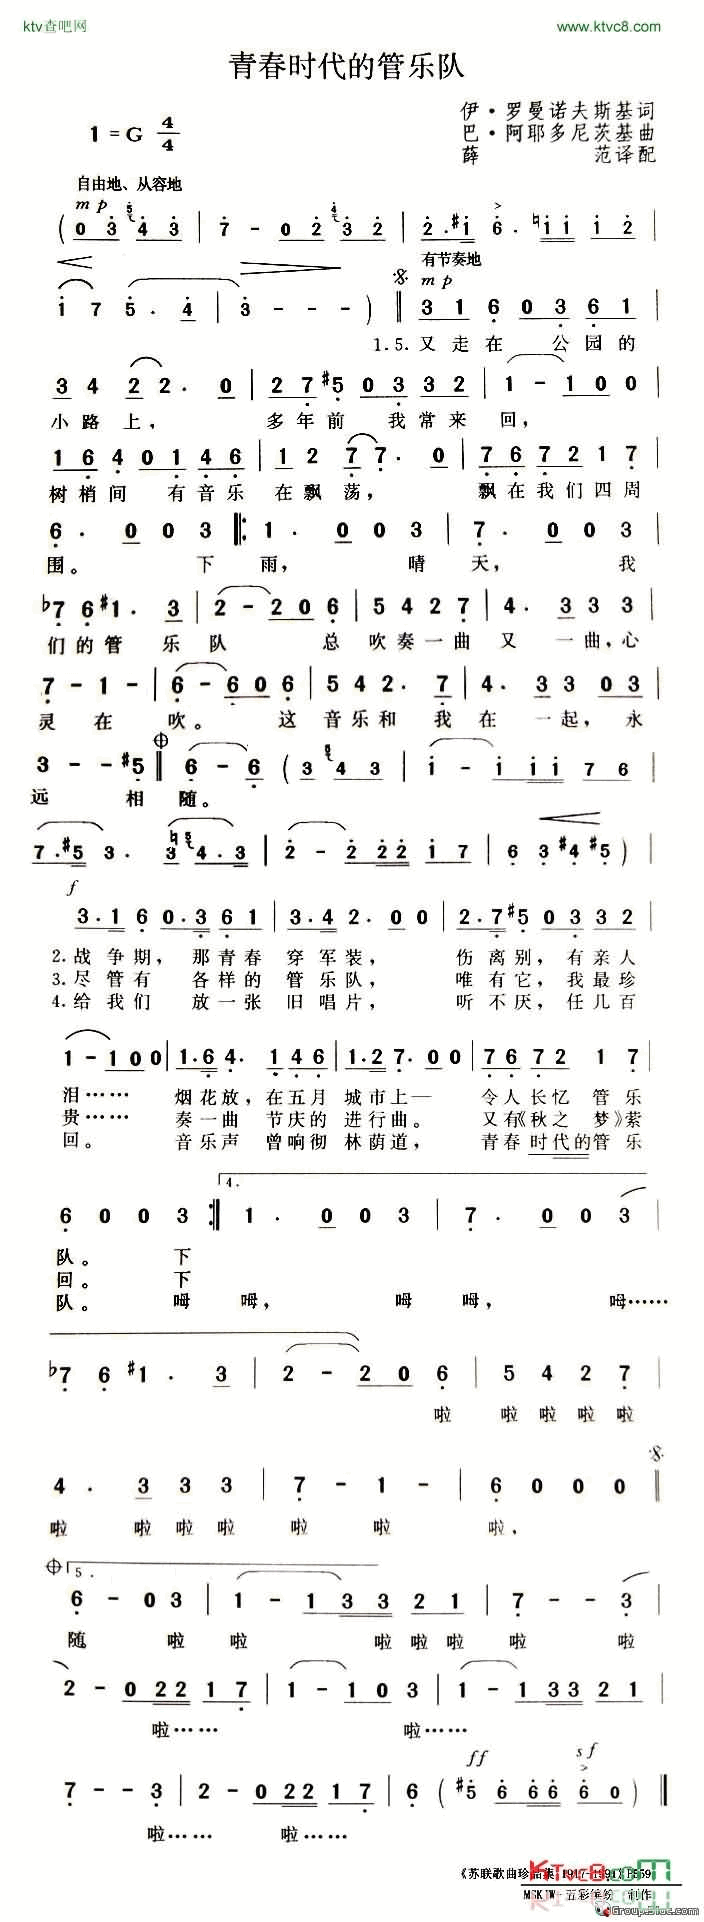 ktv查吧网
www.ktvc8.com
青春时代的管乐队
伊·罗曼诺夫斯基词
1=G 4/4
巴·阿耶多尼茨基曲
薛范译配
自由地、从容地
mp
( 0 3 4 3 | 7 - 0 2 3 2 | 2. #1 6. ♮1 1 1 2 |
有节奏地
mp
1 7 5. 4 | 3 - - - ) ‖ 3 1 6 0 3 6 1
1.5.又走在 公园的
3 4 2 2. 0 | 2 7 #5 0 3 3 2 | 1 - 1 0 0 |
小路上, 多年前 我常来回,
1 6 4 0 1 4 6 | 1 2 7 7. 0 | 7 6 7 2 1 7 |
树梢间 有音乐 在飘荡, 飘在我们四周
6. 0 0 3 ‖: 1. 0 0 3 | 7. 0 0 3 |
围。 下雨, 晴天, 我
♭7 6 #1. 3 | 2 - 2 0 6 | 5 4 2 7 | 4. 3 3 3 |
们的管 乐队 总吹奏一曲又 一曲,心
7 - 1 - | 6 - 6 0 6 | 5 4 2. 7 | 4. 3 3 0 3 |
灵在吹。 这音乐和我在一起,永
3 - - #5 ‖ 6 - 6 ( 3 4 3 | 1 - 1 1 1 7 6 |
远 相随。
7. #5 3. 3 4. 3 | 2 - 2 2 2 1 7 | 6 3 #4 #5 ) |
f
3. 1 6 0. 3 6 1 | 3. 4 2. 0 0 | 2. 7 #5 0 3 3 2 |
2.战争期,那青春 穿军装, 伤离别,有亲人
3.尽管有 各样的 管乐队, 唯有它,我最珍
4.给我们 放一张 旧唱片, 听不厌,任几百
1 - 1 0 0 | 1. 6 4. 1 4 6 | 1. 2 7. 0 0 | 7 6 7 2 1 7 |
泪…… 烟花放,在五月 城市上— 令人长忆 管乐
贵…… 奏一曲 节庆的 进行曲。 又有《秋之梦》萦
回。 音乐声 曾响彻 林荫道, 青春时代的管乐
4.
6 0 0 3 :‖ 1. 0 0 3 | 7. 0 0 3 |
队。 下
回。 下
队。 呣 呣, 呣 呣, 呣……
♭7 6 #1. 3 | 2 - 2 0 6 | 5 4 2 7 |
啦 啦 啦 啦 啦
4. 3 3 3 | 7 - 1 - | 6 0 0 0 ‖
啦 啦 啦 啦 啦 啦 啦,
5.
6 - 0 3 | 1 - 1 3 3 2 1 | 7 - - 3 |
随 啦 啦 啦 啦 啦 啦
2 - 0 2 2 1 7 | 1 - 1 0 3 | 1 - 1 3 3 2 1 |
啦…… 啦……
ff sf
7 - - 3 | 2 - 0 2 2 1 7 | 6 ( #5 6 6 6 6 0 ) ‖
啦…… 啦……